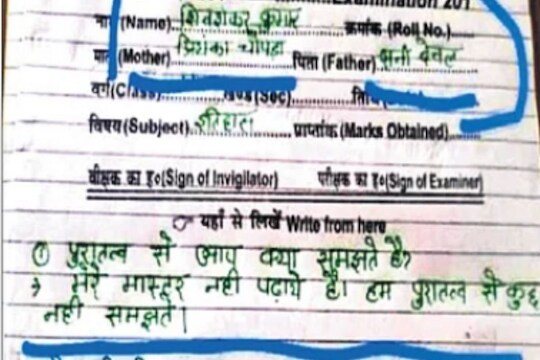 Examination 201
नाम (Name) शिवशंकर कुमार क्रमांक (Roll No.)
माता (Mother) प्रियंका चोपड़ा पिता (Father) सनी देवल
वर्ग (Class) खण्ड (Sec) तिथि
विषय (Subject) इतिहास प्राप्तांक (Marks Obtained)
वीक्षक का ह०(Sign of Invigilator) परीक्षक का ह०(Sign of Examiner)
यहाँ से लिखें Write from here
① पुरातत्व से आप क्या समझते है?
→ मेरे मास्टर नही पढ़ाये है। हम पुरातत्व से कुछ
नही समझते।